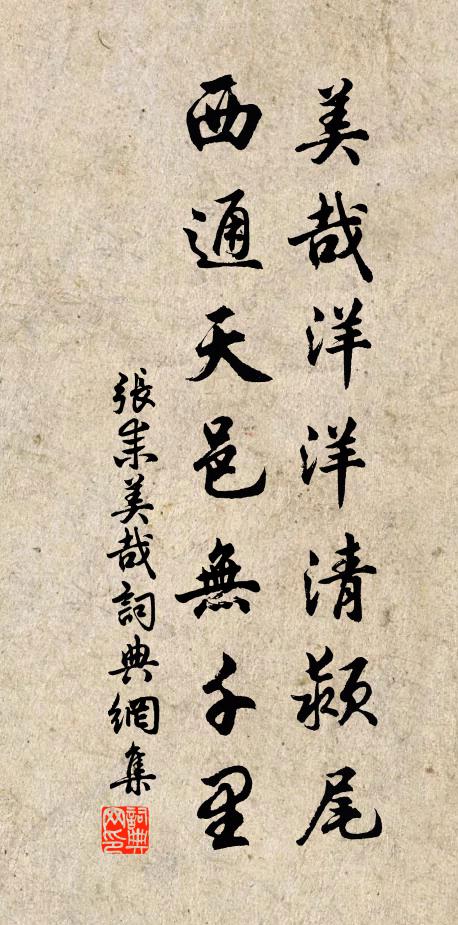 美哉洋洋清颍尾
西通天邑無千里
張耒美哉詞典網集
詞典
网印